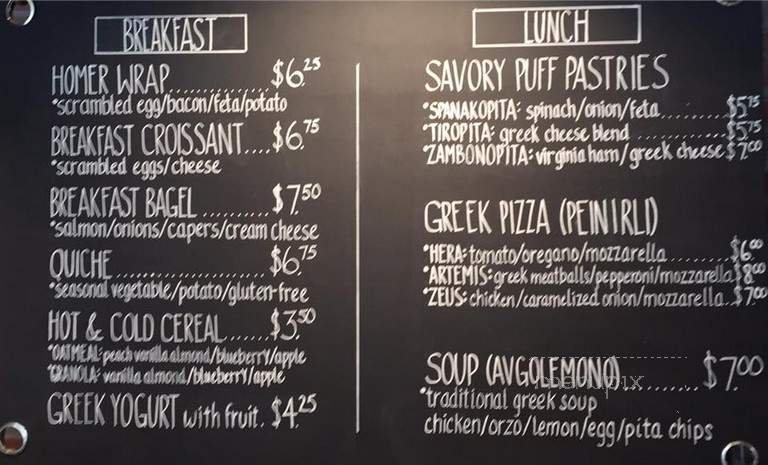 BREAKFAST
HOMER WRAP..............$6.25
*scrambled egg/bacon/feta/potato
BREAKFAST CROISSANT....$6.75
*scrambled eggs/cheese
BREAKFAST BAGEL.........$7.50
*salmon/onions/capers/cream cheese
QUICHE....................$6.75
*seasonal vegetable/potato/gluten-free
HOT & COLD CEREAL......$3.50
*OATMEAL: peach vanilla almond/blueberry/apple
*GRANOLA: vanilla almond/blueberry/apple
GREEK YOGURT with fruit. $4.25
LUNCH
SAVORY PUFF PASTRIES
*SPANAKOPITA: spinach/onion/feta........$5.75
*TIROPITA: greek cheese blend ...........$5.75
*ZAMBONOPITA: virginia ham/greek cheese $7.00
GREEK PIZZA (PEINIRLI)
*HERA: tomato/oregano/mozzarella.........$6.00
*ARTEMIS: greek meatballs/pepperoni/mozzarella $8.00
*ZEUS: chicken/caramelized onion/mozzarella..$7.00
SOUP (AVGOLEMONO).........$7.00
*traditional greek soup
chicken/orzo/lemon/egg/pita chips
menupix